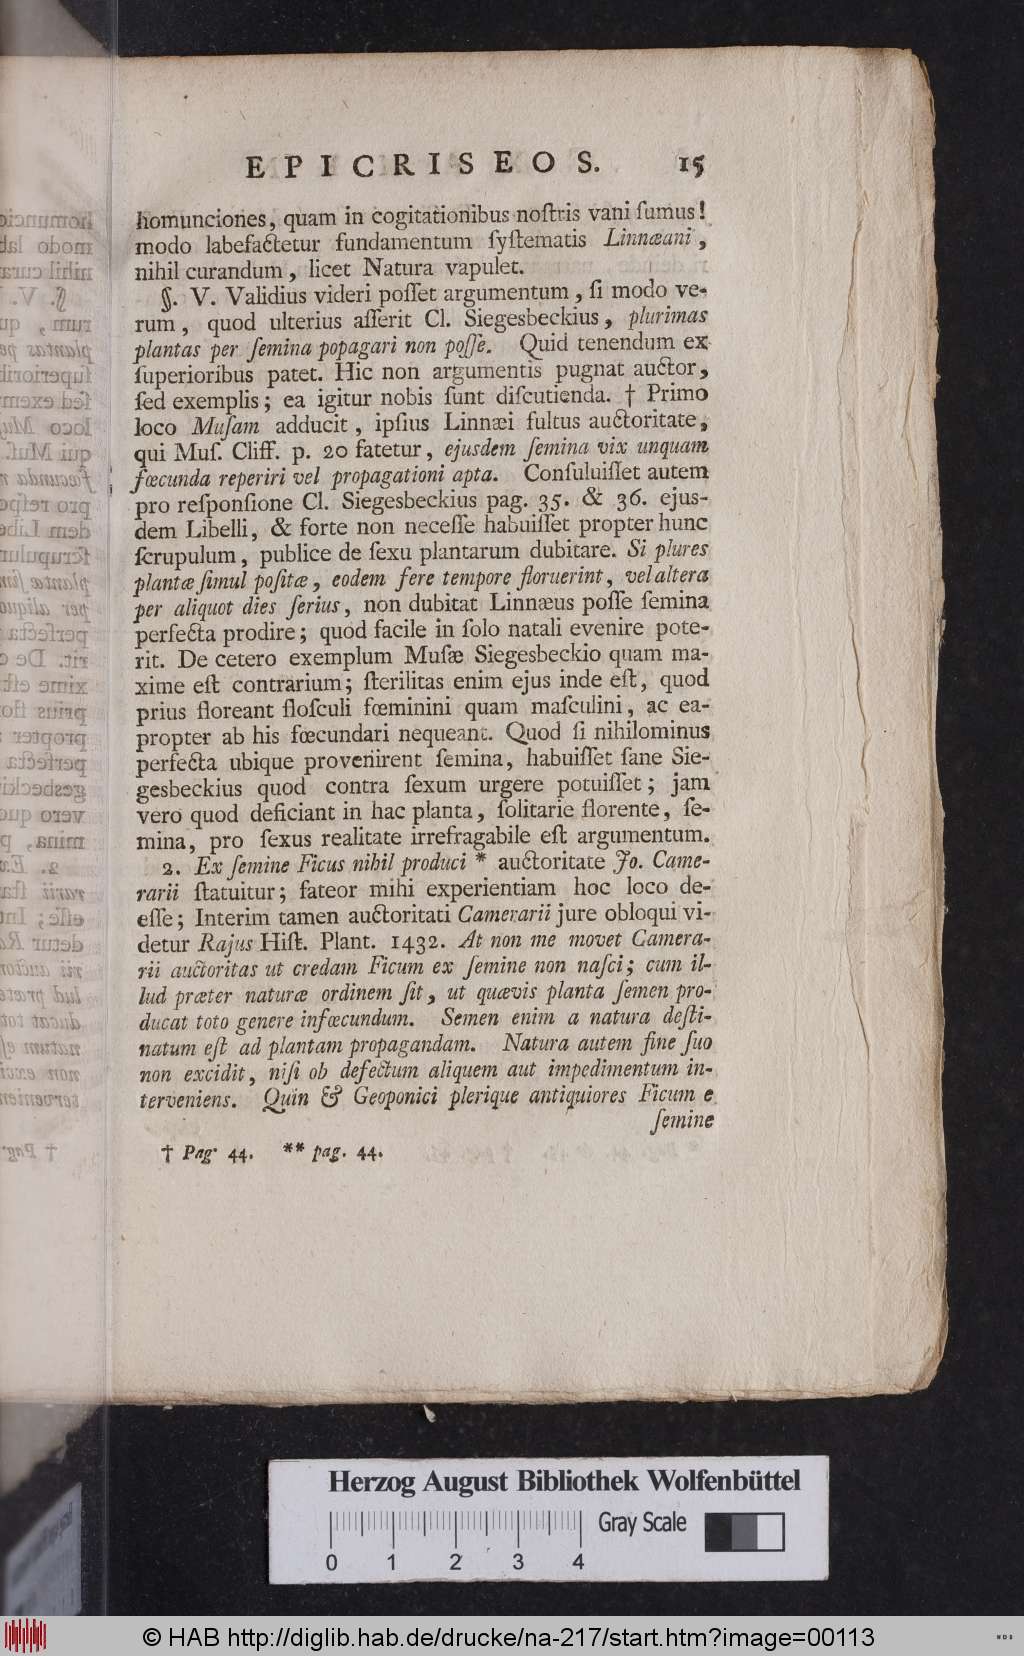 EPICRISEOS. 15
homunciones, quam in cogitationibus noſtris vani ſumus!
modo labefactetur fundamentum ſyſtematis Linnæani,
nihil curandum, licet Natura vapulet.
§. V. Validius videri poſſet argumentum, ſi modo ve-
rum, quod ulterius aſſerit Cl. Siegesbeckius, plurimas
plantas per ſemina popagari non poſſe. Quid tenendum ex
ſuperioribus patet. Hic non argumentis pugnat auctor,
ſed exemplis; ea igitur nobis ſunt diſcutienda. † Primo
loco Muſam adducit, ipſius Linnæi fultus auctoritate,
qui Muſ. Cliff. p. 20 fatetur, ejusdem ſemina vix unquam
fœcunda reperiri vel propagationi apta. Conſuluiſſet autem
pro reſponſione Cl. Siegesbeckius pag. 35. & 36. ejus-
dem Libelli, & forte non neceſſe habuiſſet propter hunc
ſcrupulum, publice de ſexu plantarum dubitare. Si plures
plantæ ſimul poſitæ, eodem fere tempore floruerint, vel altera
per aliquot dies ſerius, non dubitat Linnæus poſſe ſemina
perfecta prodire; quod facile in ſolo natali evenire pote-
rit. De cetero exemplum Muſæ Siegesbeckio quam ma-
xime eſt contrarium; ſterilitas enim ejus inde eſt, quod
prius floreant floſculi fœminini quam maſculini, ac ea-
propter ab his fœcundari nequeant. Quod ſi nihilominus
perfecta ubique provenirent ſemina, habuiſſet ſane Sie-
gesbeckius quod contra ſexum urgere potuiſſet; jam
vero quod deficiant in hac planta, ſolitarie florente, ſe-
mina, pro ſexus realitate irrefragabile eſt argumentum.
2. Ex ſemine Ficus nihil produci * auctoritate Jo. Came-
rarii ſtatuitur; fateor mihi experientiam hoc loco de-
eſſe; Interim tamen auctoritati Camerarii jure obloqui vi-
detur Rajus Hiſt. Plant. 1432. At non me movet Camera-
rii auctoritas ut credam Ficum ex ſemine non naſci; cum il-
lud præter naturæ ordinem ſit, ut quævis planta ſemen pro-
ducat toto genere infœcundum. Semen enim a natura deſti-
natum eſt ad plantam propagandam. Natura autem fine ſuo
non excidit, niſi ob defectum aliquem aut impedimentum in-
terveniens. Quin & Geoponici plerique antiquiores Ficum e
ſemine
† Pag. 44. ** pag. 44.
Herzog August Bibliothek Wolfenbüttel
Gray Scale
0 1 2 3 4
© HAB http://diglib.hab.de/drucke/na-217/start.htm?image=00113